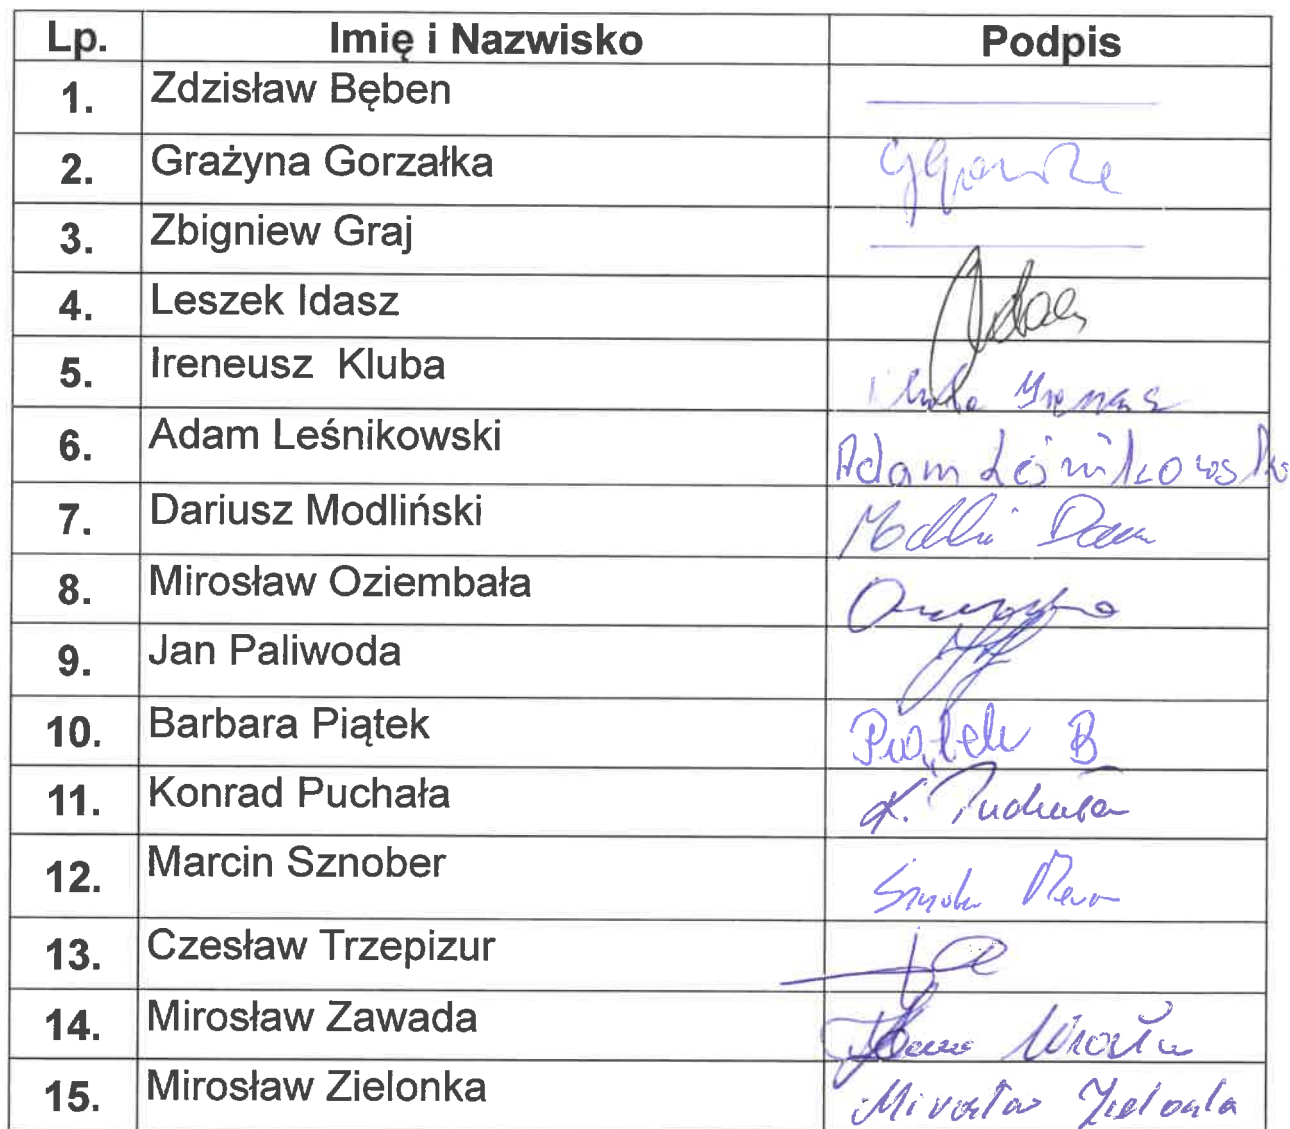 Lp. Imię i Nazwisko Podpis
1. Zdzisław Bęben
2. Grażyna Gorzałka
3. Zbigniew Graj
4. Leszek Idasz
5. Ireneusz Kluba
6. Adam Leśnikowski Adam Leśnikowski
7. Dariusz Modliński
8. Mirosław Oziembała
9. Jan Paliwoda
10. Barbara Piątek Piątek B
11. Konrad Puchała K. Puchała
12. Marcin Sznober
13. Czesław Trzepizur
14. Mirosław Zawada
15. Mirosław Zielonka Mirosław Zielonka